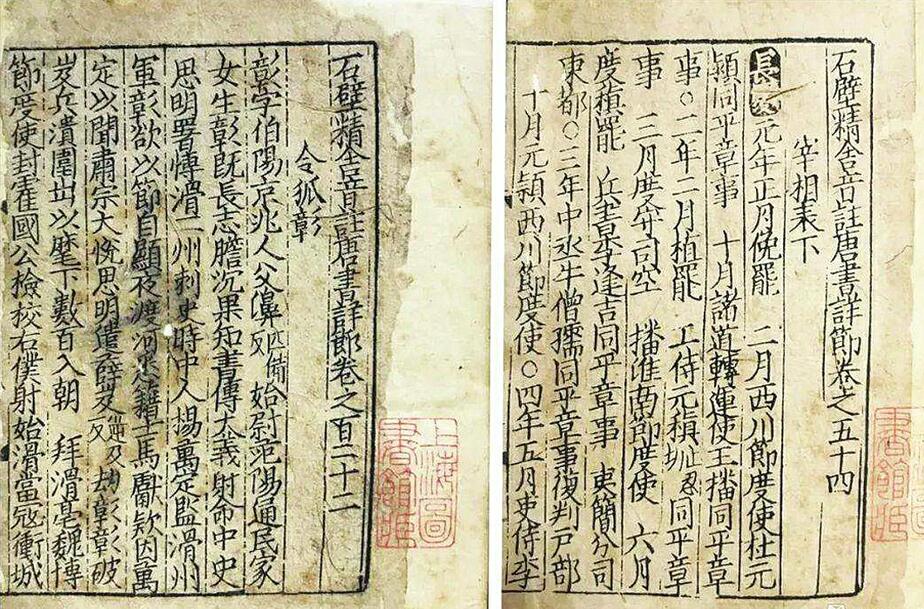 石壁精舍音註唐書詳節卷之五十四
宰相表下
長慶元年正月俛罷 二月西川節度使杜元
頴同平章事 十月諸道轉運使王播同平章
事○二年二月植罷 工侍元稹忍同平章
事 三月度守司空 播淮南節度使 六月
度稹罷 兵書李逢吉同平章事 夷簡分司
東都○三年中丞牛僧孺同平章事復判戶部
十月元頴西川節度使○四年五月吏侍李
書館藏
石壁精舍音註唐書詳節卷之百二十二
令狐彰
彰字伯陽京兆人父濞匹備反始尉范陽通民家
女生彰既長志膽沉果知書傳大義射命中史
思明署慱滑二州刺史時中人揚萬定監滑州
軍彰欲以節自顯夜渡河悉籍士馬獻欵因萬
定以聞肅宗大恱思明遣薛岌逆及反劫彰彰破
岌兵潰圍出以麾下數百入朝 拜滑亳魏博
節度使封霍國公檢校右僕射始滑當寇衝城
上海圖
書館藏